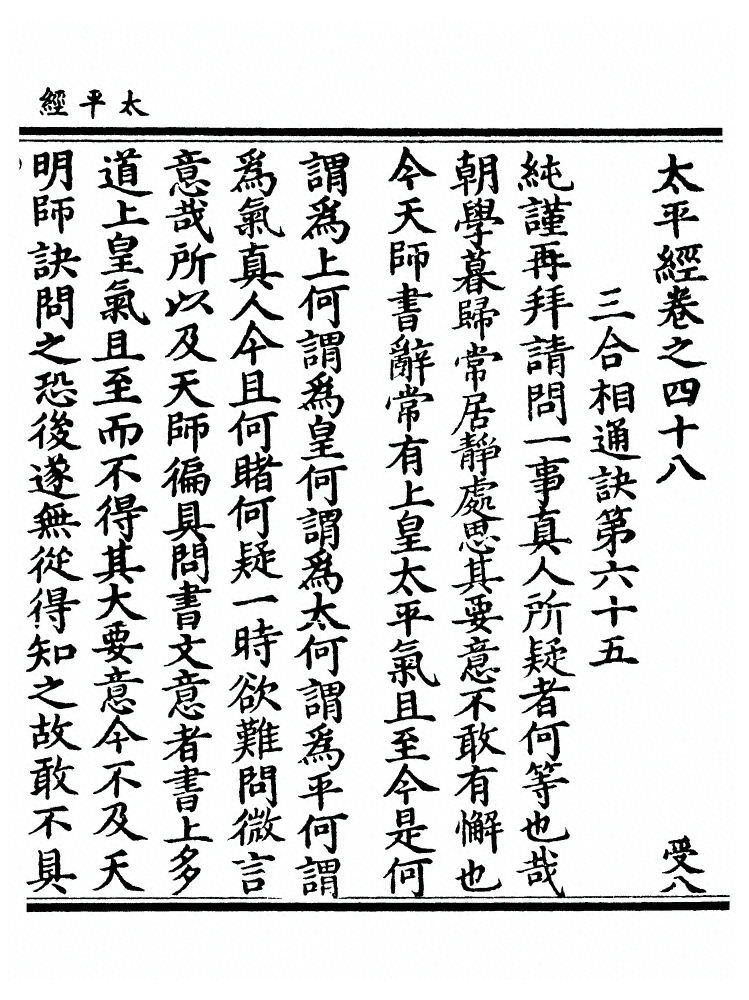 太平經
太平經卷之四十八 受八
三合相通訣第六十五
純謹再拜請問一事真人所疑者何等也哉
朝學暮歸常居靜處思其要意不敢有懈也
今天師書辭常有上皇太平氣且至今是何
謂爲上何謂爲皇何謂爲太何謂爲平何謂
爲氣真人今且何睹何疑一時欲難問微言
意哉所以及天師徧具問書文意者書上多
道上皇氣且至而不得其大要意今不及天
明師訣問之恐後遂無從得知之故敢不具